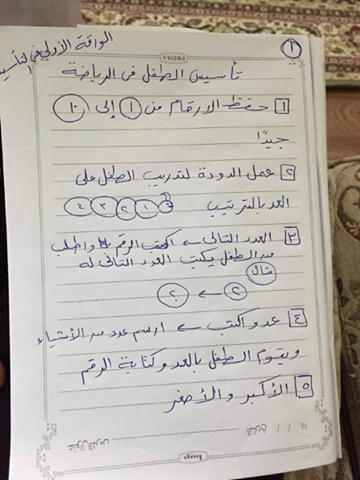 الورقة الأولى فى التأسيس
١
PRIMA
تأسيس الطفل فى الرياضة
١ حفظ الارقام من ١ إلى ١٠
جيدًا
٢ عمل الدودة لتدريب الطفل على
العد بالترتيب ١ ٢ ٣ ٤
٣ العدد التالى ← اكتب الرقم واطلب
من الطفل يكتب العدد التالى له
مثال
٢ ← ؟
٤ عد واكتب ← ارسم عدد من الأشياء
ويقوم الطفل بالعد وكتابة الرقم
٥ الأكبر والأصغر
التاريخ / /